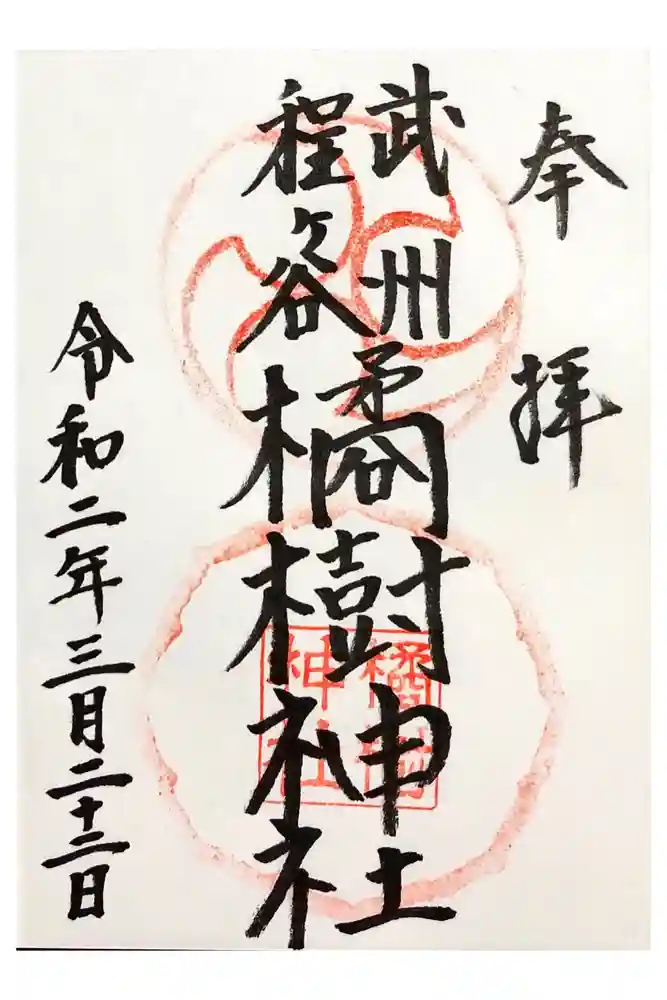 奉拝
武州
程ヶ谷
橘樹神社
橘樹
神社
令和二年三月二十二日